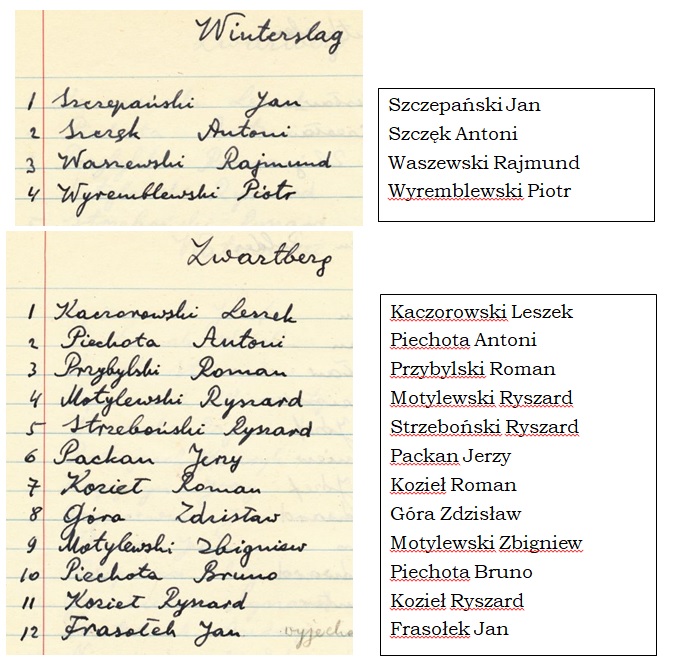 Winterslag
1 Szczepański Jan
2 Szczęk Antoni
3 Waszewski Rajmund
4 Wyremblewski Piotr
Szczepański Jan
Szczęk Antoni
Waszewski Rajmund
Wyremblewski Piotr
Zwartberg
1 Kaczorowski Leszek
2 Piechota Antoni
3 Przybylski Roman
4 Motylewski Ryszard
5 Strzeboński Ryszard
6 Packan Jerzy
7 Kozieł Roman
8 Góra Zdzisław
9 Motylewski Zbigniew
10 Piechota Bruno
11 Kozieł Ryszard
12 Frasołek Jan wyjecha
Kaczorowski Leszek
Piechota Antoni
Przybylski Roman
Motylewski Ryszard
Strzeboński Ryszard
Packan Jerzy
Kozieł Roman
Góra Zdzisław
Motylewski Zbigniew
Piechota Bruno
Kozieł Ryszard
Frasołek Jan